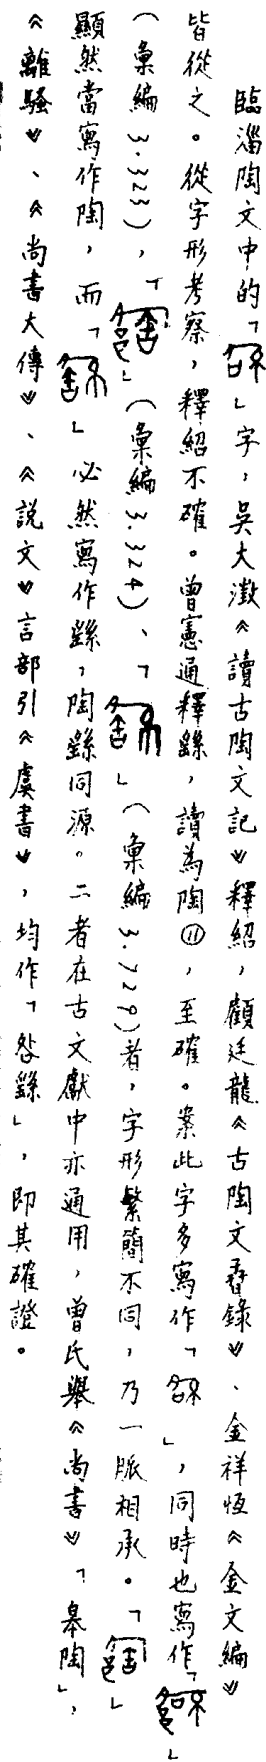 臨淄陶文中的「」字，吳大澂《讀古陶文記》釋紹，顧廷龍《古陶文孴錄》、金祥恆《金文編》
皆從之。從字形考察，釋紹不確。曾憲通釋繇，讀為陶⑪，至確。案此字多寫作「」，同時也寫作「」
（彙編3.323），「」（彙編3.324）、「」（彙編3.729）者，字形繁簡不同，乃一脈相承。「」
顯然當寫作陶，而「」必然寫作繇，陶繇同源。二者在古文獻中亦通用，曾氏舉《尚書》「皋陶」，
《離騷》、《尚書大傳》、《說文》言部引《虞書》，均作「咎繇」，即其確證。